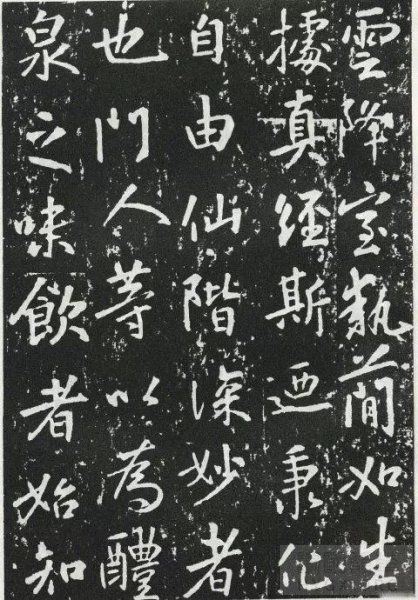 雲降室執簡如生
據真經斯迺秉化
自由仙階深妙者
也門人等以為醴
泉之味飲者始知